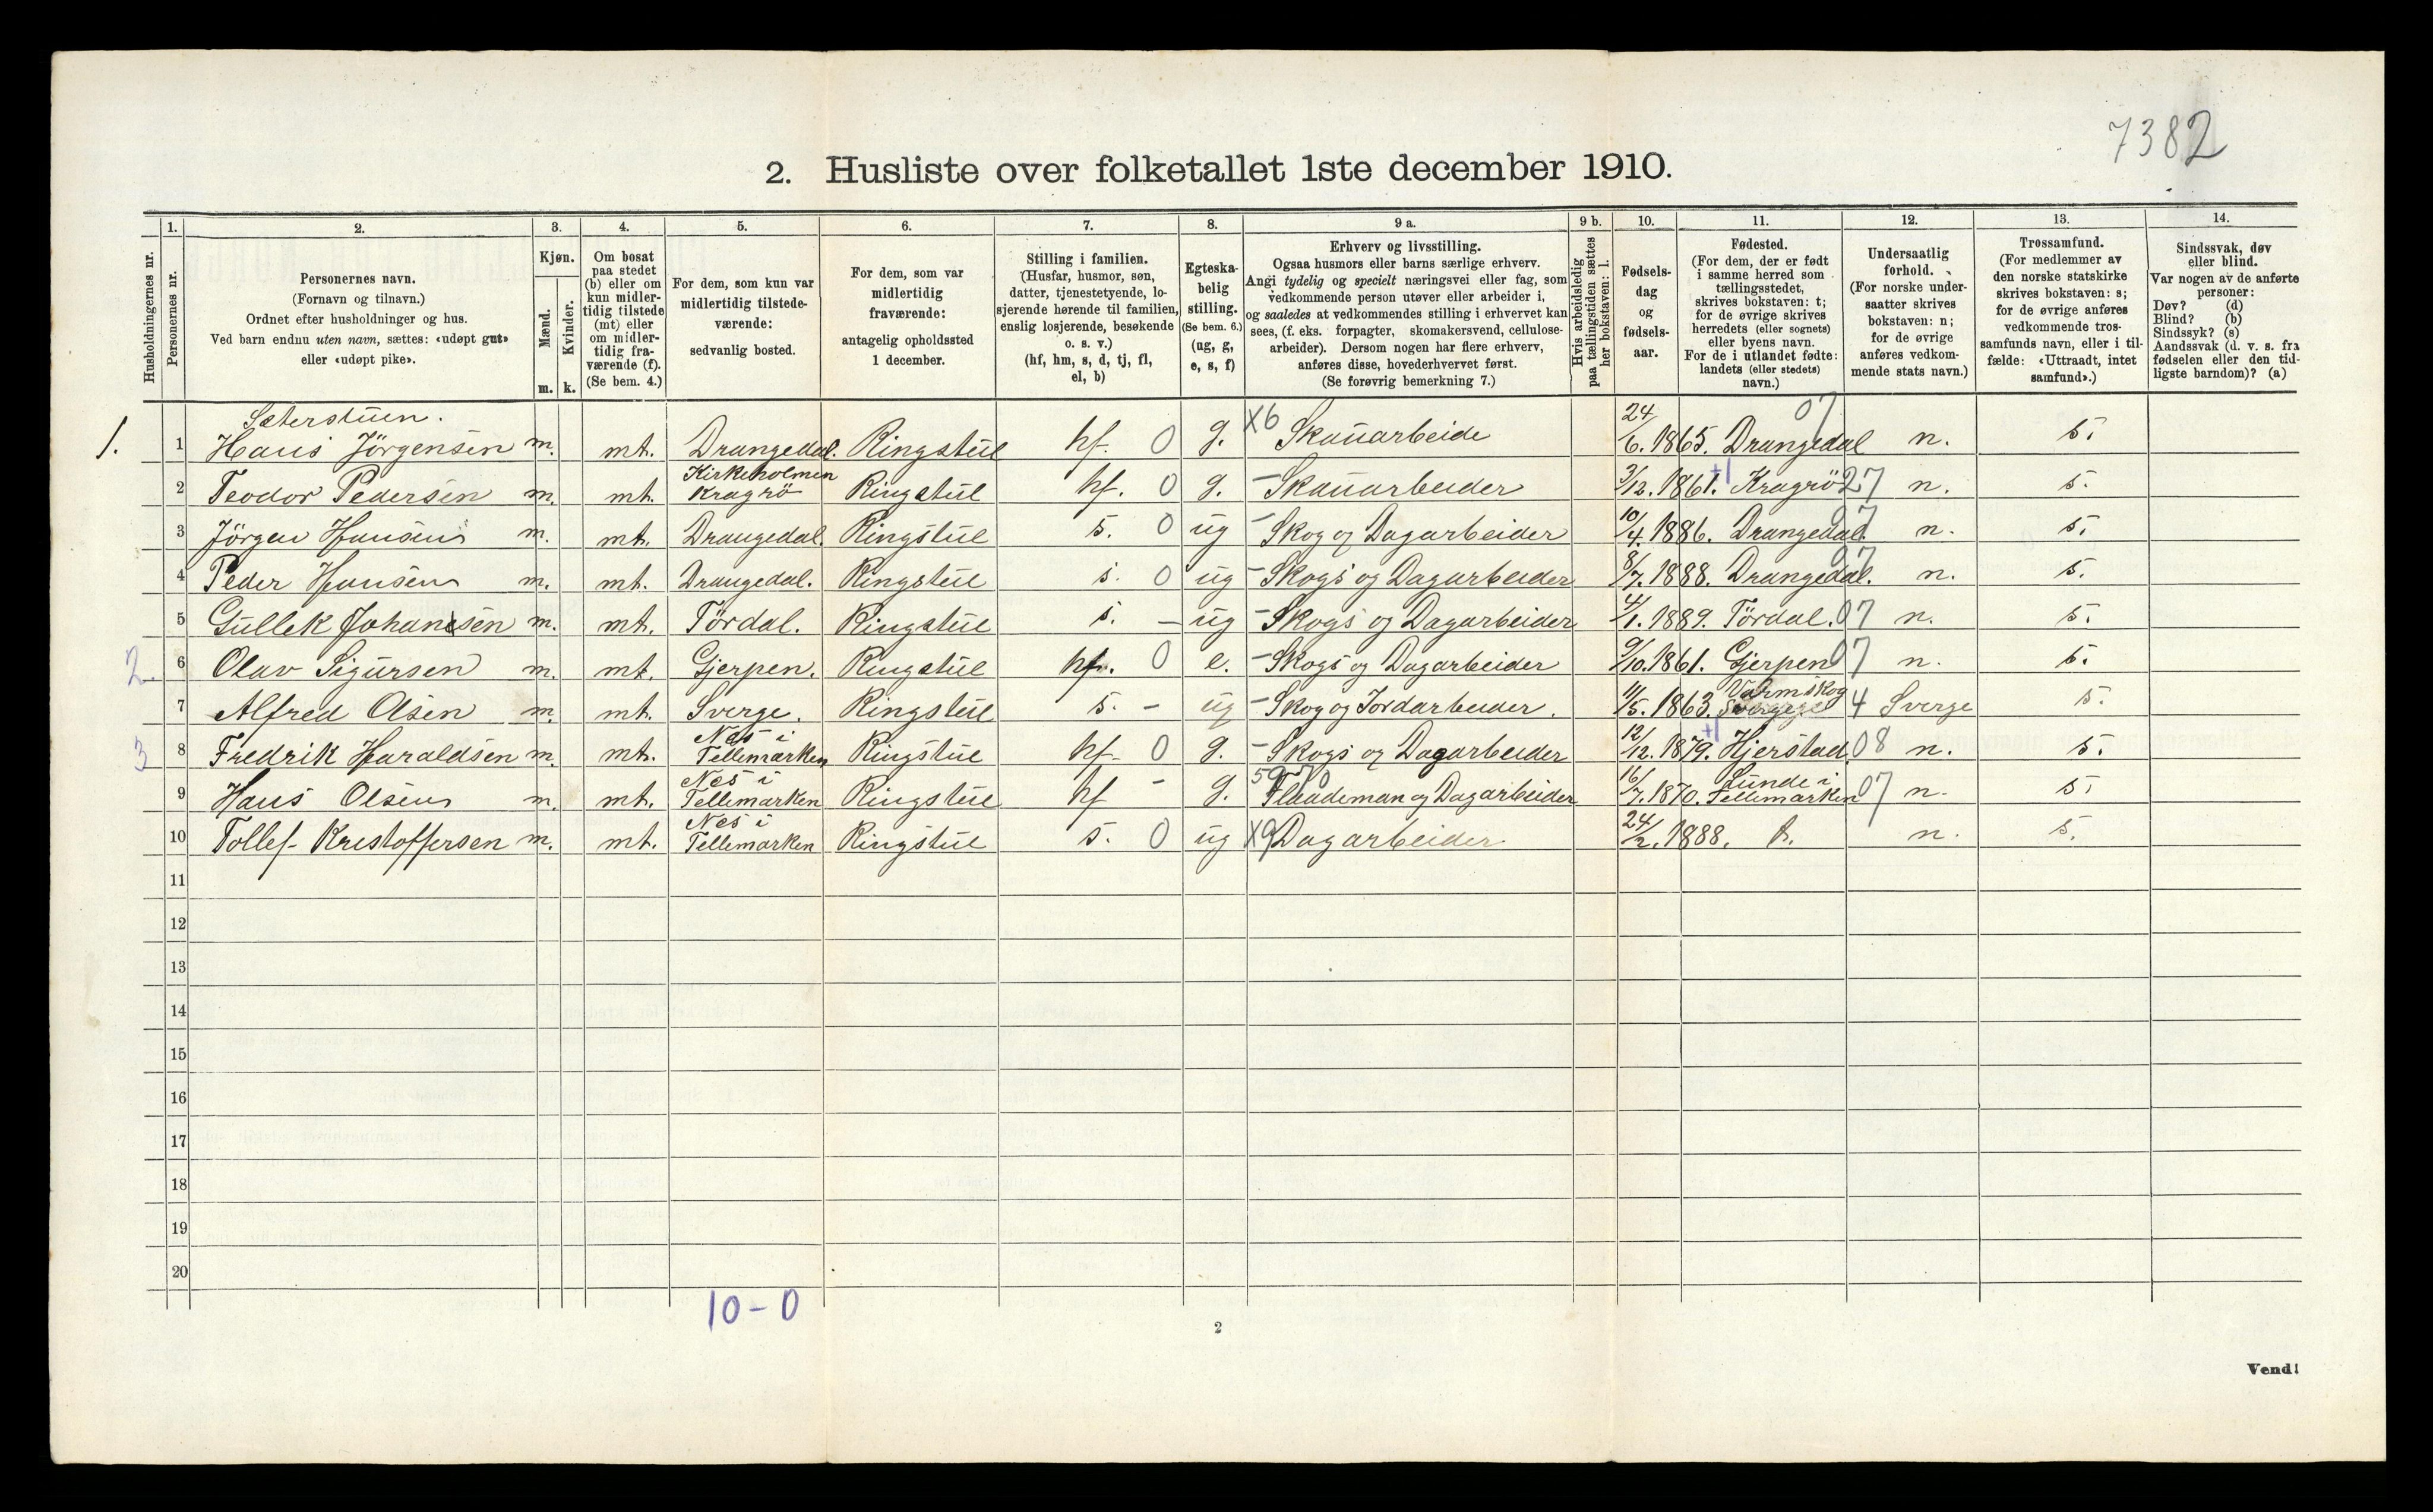 7382
2. Husliste over folketallet 1ste december 1910.
Husholdningernes nr.
1.
Personernes nr.
2.
Personernes navn.
(Fornavn og tilnavn.)
Ordnet efter husholdninger og hus.
Ved barn endnu uten navn, sættes: «udøpt gut»
eller «udøpt pike».
3.
Kjøn.
Mænd.
Kvinder.
m. k.
4.
Om bosat
paa stedet
(b) eller om
kun midler-
tidig tilstede
(mt) eller
om midler-
tidig fra-
værende (f).
(Se bem. 4.)
5.
For dem, som kun var
midlertidig tilstede-
værende:
sedvanlig bosted.
6.
For dem, som var
midlertidig
fraværende:
antagelig opholdssted
1 december.
7.
Stilling i familien.
(Husfar, husmor, søn,
datter, tjenestetyende, lo-
sjerende hørende til familien,
enslig losjerende, besøkende
o. s. v.)
(hf, hm, s, d, tj, fl,
el, b)
8.
Egteska-
belig
stilling.
(Se bem. 6.)
(ug, g,
e, s, f)
9 a.
Erhverv og livsstilling.
Ogsaa husmors eller barns særlige erhverv.
Angi tydelig og specielt næringsvei eller fag, som
vedkommende person utøver eller arbeider i,
og saaledes at vedkommendes stilling i erhvervet kan
sees, (f. eks. forpagter, skomakersvend, cellulose-
arbeider). Dersom nogen har flere erhverv,
anføres disse, hovederhvervet først.
(Se forøvrig bemerkning 7.)
9 b.
Hvis arbeidsledig
paa tællingstiden sættes
her bokstaven: l.
10.
Fødsels-
dag
og
fødsels-
aar.
11.
Fødested.
(For dem, der er født
i samme herred som
tællingsstedet,
skrives bokstaven: t;
for de øvrige skrives
herredets (eller sognets)
eller byens navn.
For de i utlandet fødte:
landets (eller stedets)
navn.)
12.
Undersaatlig
forhold.
(For norske under-
saatter skrives
bokstaven: n;
for de øvrige
anføres vedkom-
mende stats navn.)
13.
Trossamfund.
(For medlemmer av
den norske statskirke
skrives bokstaven: s;
for de øvrige anføres
vedkommende tros-
samfunds navn, eller i til-
fælde: «Uttraadt, intet
samfund».)
14.
Sindssvak, døv
eller blind.
Var nogen av de anførte
personer:
Døv? (d)
Blind? (b)
Sindssyk? (s)
Aandssvak (d. v. s. fra
fødselen eller den tid-
ligste barndom)? (a)
Sæterstuen.
1. 1 Hans Jörgensen m. mt. Drangedal. Ringstul hf. 0 g. X6 Skauarbeide 24/6. 1865. Drangedal 07 n. s.
2 Teodor Pedersen m. mt. Kirkeholmen Kragrö Ringstul hf. 0 g. - Skauarbeider 3/12. 1861. +1 Kragrö 27 n. s.
3 Jörgen Hansen m. mt. Drangedal Ringstul s. 0 ug - Skog og Dagarbeider 10/4. 1886. Drangedal. 07 n. s.
4 Peder Hansen m. mt. Drangedal. Ringstul s. 0 ug - Skogs og Dagarbeider 8/7. 1888. Drangedal. 07 n. s.
5 Gullek Johansen m. mt. Tördal. Ringstul s. - ug - Skogs og Dagarbeider 4/1. 1889. Tördal. 07 n. s.
2. 6 Olav Sigursen m. mt. Gjerpen. Ringstul hf. 0 e. - Skogs og Dagarbeider 9/10. 1861. Gjerpen 07 n. s.
7 Alfred Olsen m. mt. Sverge. Ringstul s. - ug - Skog og Jordarbeider. 11/5. 1863. Varmskog Sverge 4 Sverge s.
3 8 Fredrik Haraldsen m. mt. Nes i Tellemarken Ringstul hf 0 g. - Skogs og Dagarbeider 12/12. 1879. +1 Hjerstad 08 n. s.
9 Hans Olsen m. mt. Nes i Tellemarken Ringstul hf - g. Flaademan og Dagarbeider 16/7. 1870. Lunde i Tellemarken 07 n. s.
10 Tollef Krestoffersen m. mt. Nes i Tellemarken Ringstul s. 0 ug X9 Dagarbeider 24/2. 1888. n. s.
11
12
13
14
15
16
17
18
19
20
10-0
2
Vend!